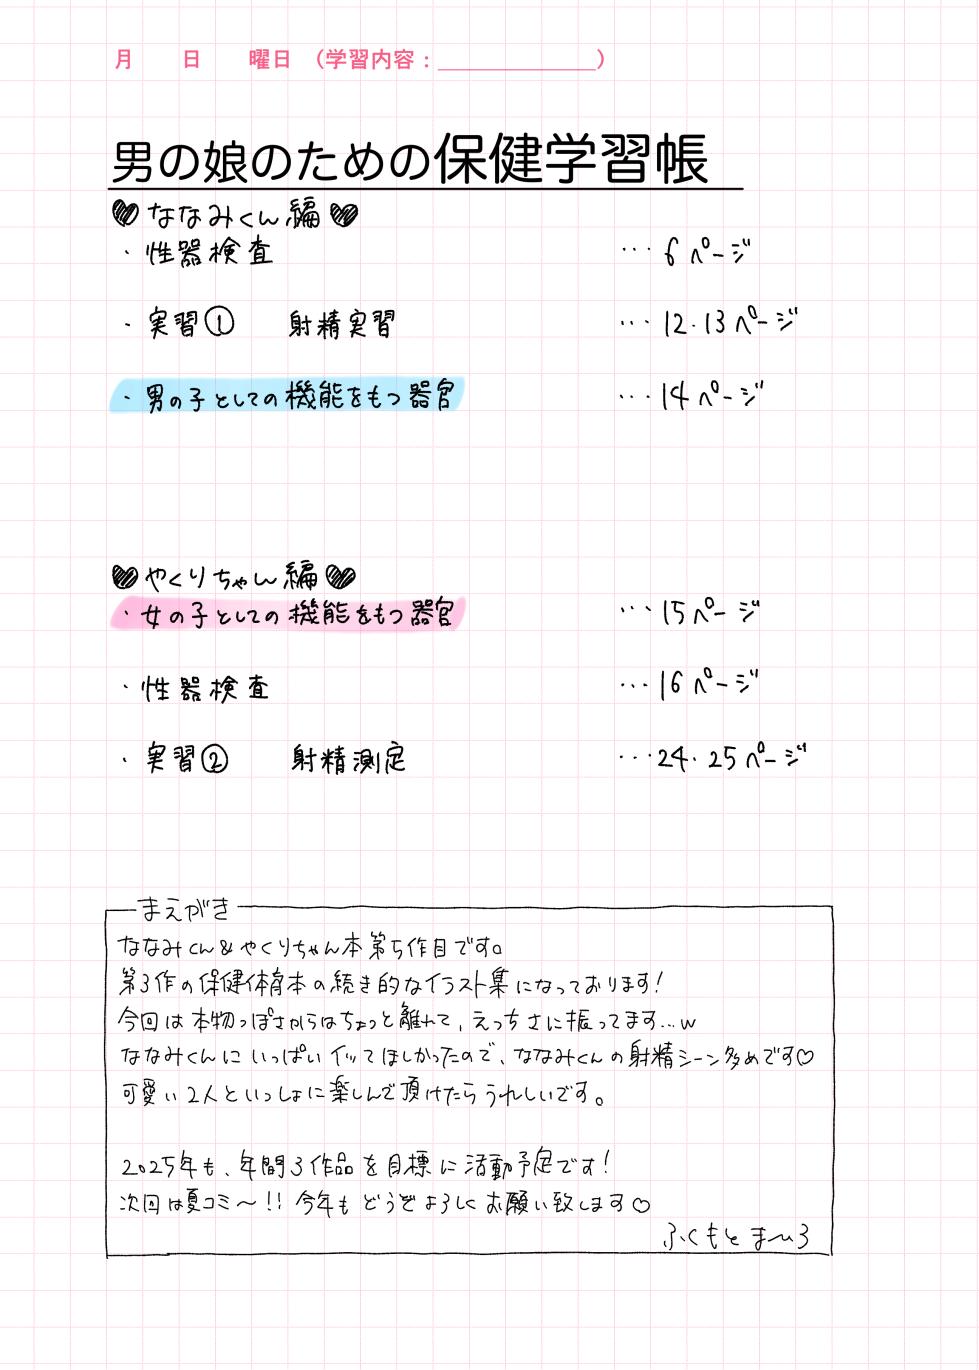 月 日 曜日 （学習内容：＿＿＿＿＿＿＿）
男の娘のための保健学習帳
♥ななみくん編♥
・性器検査 …6ページ
・実習① 射精実習 …12.13ページ
・男の子としての機能をもつ器官 …14ページ
♥やくりちゃん編♥
・女の子としての機能をもつ器官 …15ページ
・性器検査 …16ページ
・実習② 射精測定 …24.25ページ
まえがき
ななみくん&やくりちゃん本第5作目です。
第3作の保健体育本の続き的なイラスト集になっております!
今回は本物っぽさからはちょっと離れて、えっちさに振ってます…w
ななみくんにいっぱいイッてほしかったので、ななみくんの射精シーン多めです♡
可愛い2人といっしょに楽しんで頂けたらうれしいです。
2025年も、年間3作品を目標に活動予定です!
次回は夏コミ〜!! 今年もどうぞよろしくお願い致します♡
ふくもとま〜ろ